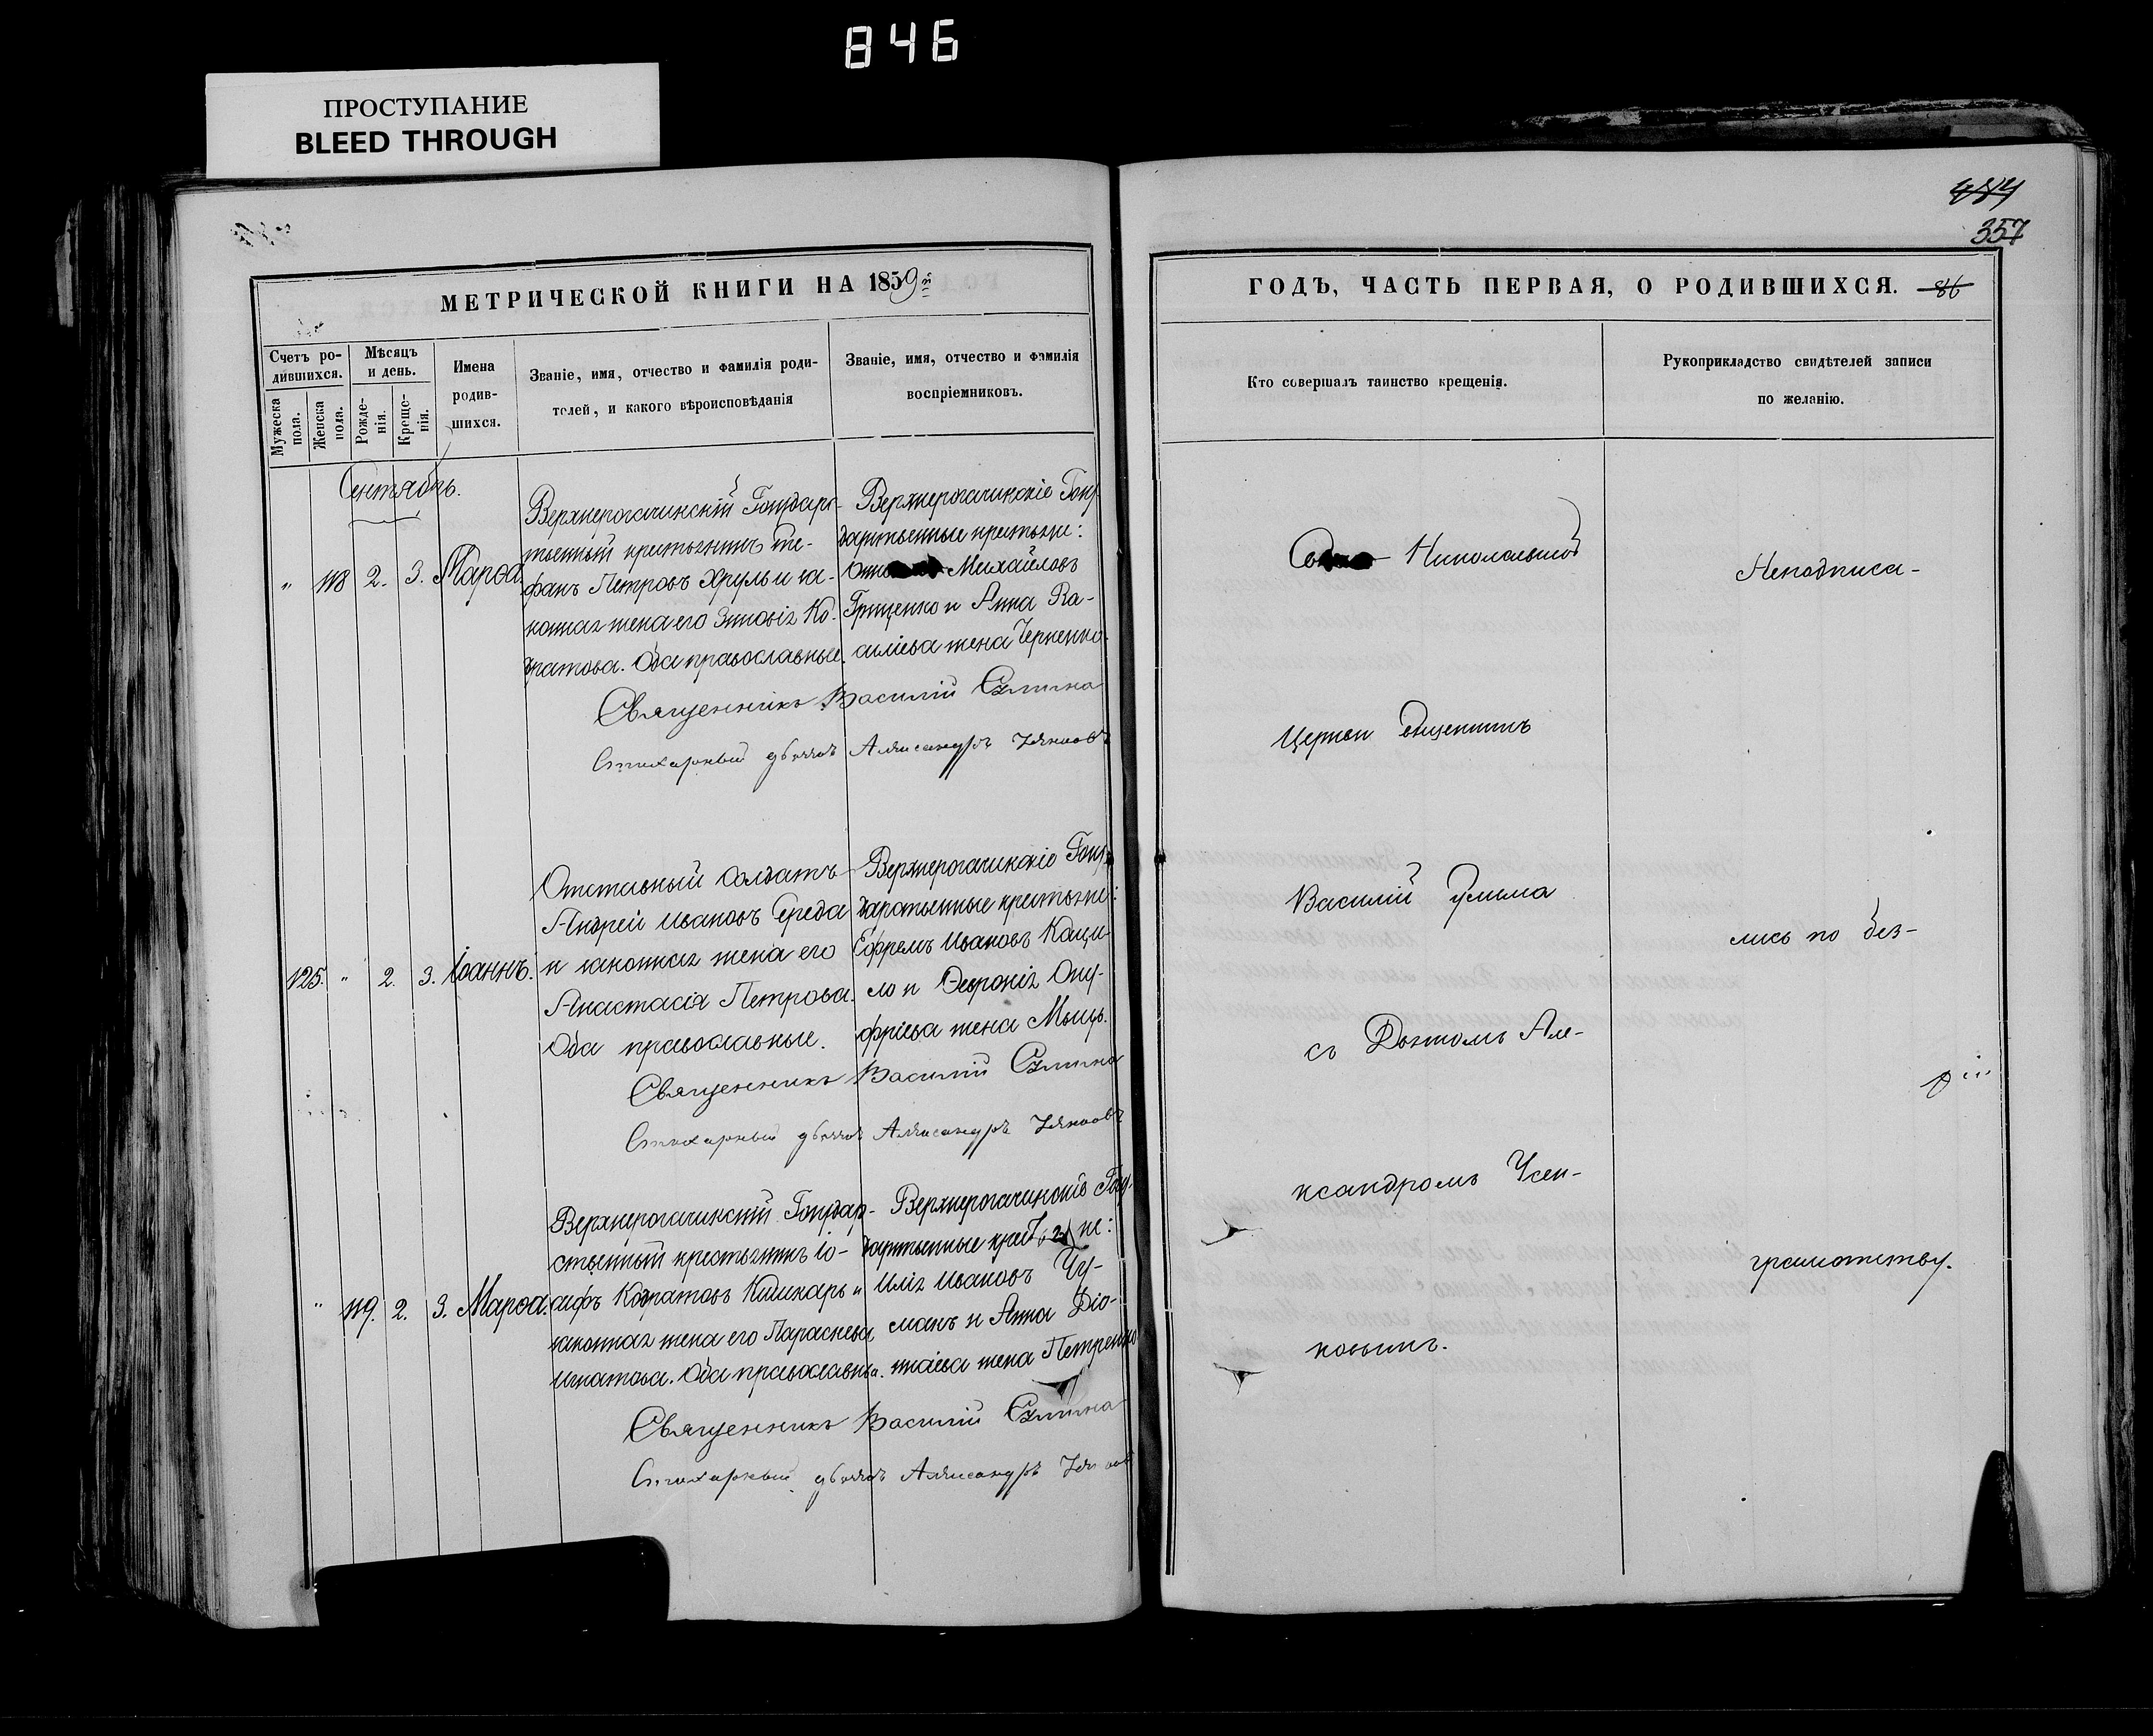 846
ПРОСТУПАНИЕ
BLEED THROUGH
357
МЕТРИЧЕСКОЙ КНИГИ НА 1859й
Счетъ ро-
дившихся.
Мужеска
пола.
Женска
пола.
Мѣсяцъ
и день.
Рожде-
нія.
Креще-
нія.
Имена
родив-
шихся.
Званіе, имя, отчество и фамилія роди-
телей, и какого вѣроисповѣданія
Званіе, имя, отчество и фамилія
воспріемниковъ.
Сентябрь.
" 118 2. 3. Марѳа.
Верхнерогачинскій Государс-
твенный крестьянинъ Сте-
фанъ Петровъ Хруль и за-
конная жена его Зиновія Ко-
дратова. Оба православные.
Верхнерогачинскіе Госу-
дарственные крестьяне:
Михайловъ
Грищенко и Анна Ва-
силіева жена Черненко.
Священникъ Василій
Стихарный дьячокъ Александръ
125. " 2. 3. Іоаннъ.
Отставный солдатъ
Андрей Ивановъ Середа
и законная жена его
Анастасія Петрова.
Оба православные.
Верхнерогачинскіе Госу-
дарственные крестьяне:
Ефремъ Ивановъ Каци-
ло и Февронія Ону-
фріева жена Мыць.
Священникъ Василій
Стихарный дьячокъ Александръ
" 119. 2. 3. Марѳа.
Верхнерогачинскій Государ-
ственный крестьянинъ Іо-
сифъ Кодратовъ Кишкарь и
законная жена его Параскева
Игнатова. Оба православны.
Верхнерогачинскіе Госу-
дарственные
Илія Ивановъ Чу-
манъ и Анна Діо-
жена Петренко
Священникъ Василій
Стихарный дьячокъ Александръ
ГОДЪ, ЧАСТЬ ПЕРВАЯ, О РОДИВШИХСЯ. 86
Кто совершалъ таинство крещенія.
Рукоприкладство свидѣтелей записи
по желанію.
Николаевской
Церкви Священникъ
Василій
съ Дьячкомъ Але-
ксандромъ Усен-
ковымъ.
Неподписа-
лись по без-
грамотству.